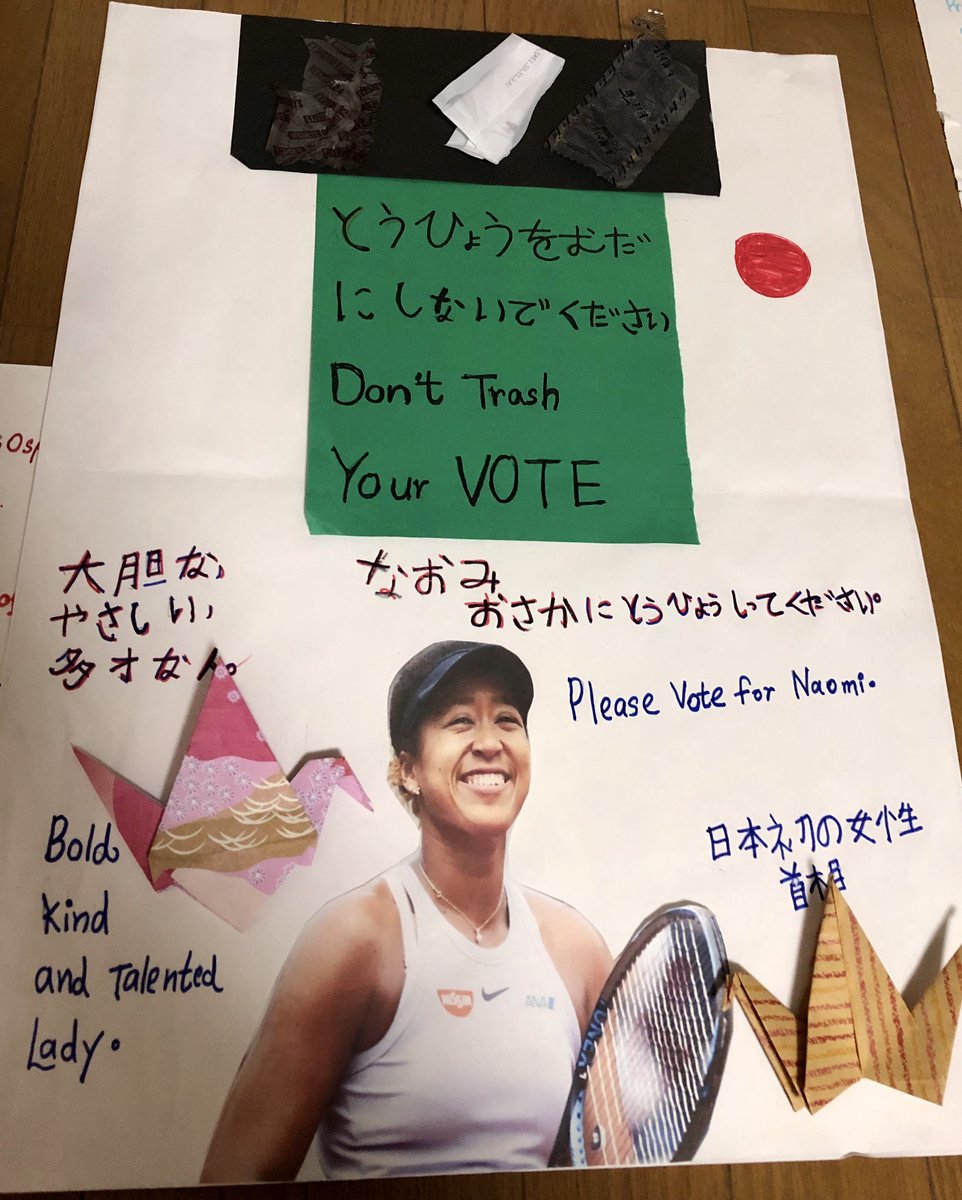 とうひょうをむだ
にしないでください
Don't Trash
Your VOTE
大胆な,
やさしい,
多才な人。
なおみ
おさかにとうひょうしってください。
Please Vote for Naomi.
Bold,
Kind
and Talented
Lady.
日本初の女性
首相
NISSIN
ANA